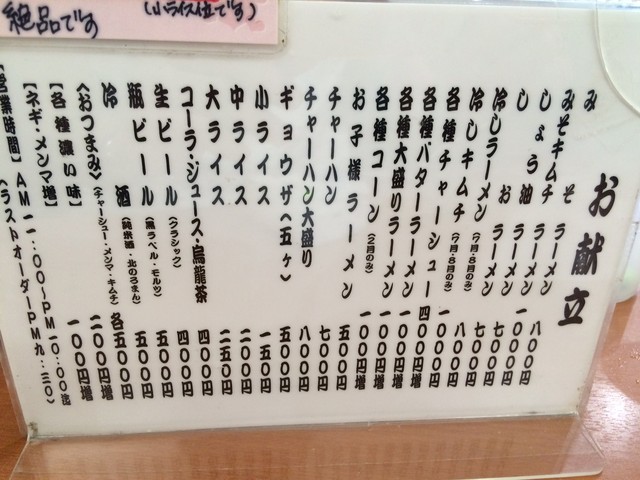 絶品です
(小ライス付です)
お献立
みそラーメン 八〇〇円
みそキムチラーメン 一〇〇〇円
しょう油ラーメン 七〇〇円
しおラーメン 七〇〇円
冷しラーメン(7月・8月のみ) 八〇〇円
冷しキムチ(7月・8月のみ) 一〇〇〇円
各種チャーシュー 四〇〇円増
各種バターラーメン 一〇〇円増
各種大盛りラーメン 一〇〇円増
各種コーン(2月のみ) 一〇〇円増
お子様ラーメン 五〇〇円
チャーハン 七〇〇円
チャーハン大盛り 八〇〇円
ギョウザ(五ヶ) 五〇〇円
小ライス 一五〇円
中ライス 二〇〇円
大ライス 二五〇円
コーラ・ジュース・烏龍茶 四〇〇円
生ビール(クラシック) 四〇〇円
瓶ビール(黒ラベル・モルツ) 五〇〇円
冷酒(純米酒・北のろまん) 五〇〇円
〈おつまみ〉(チャーシュー・メンマ・キムチ) 各五〇〇円
【各種濃い味】 二〇〇円増
【ネギ・メンマ増】 一〇〇円増
【営業時間】AM一一:〇〇〜PM一〇:〇〇迄
(ラストオーダーPM九:三〇)